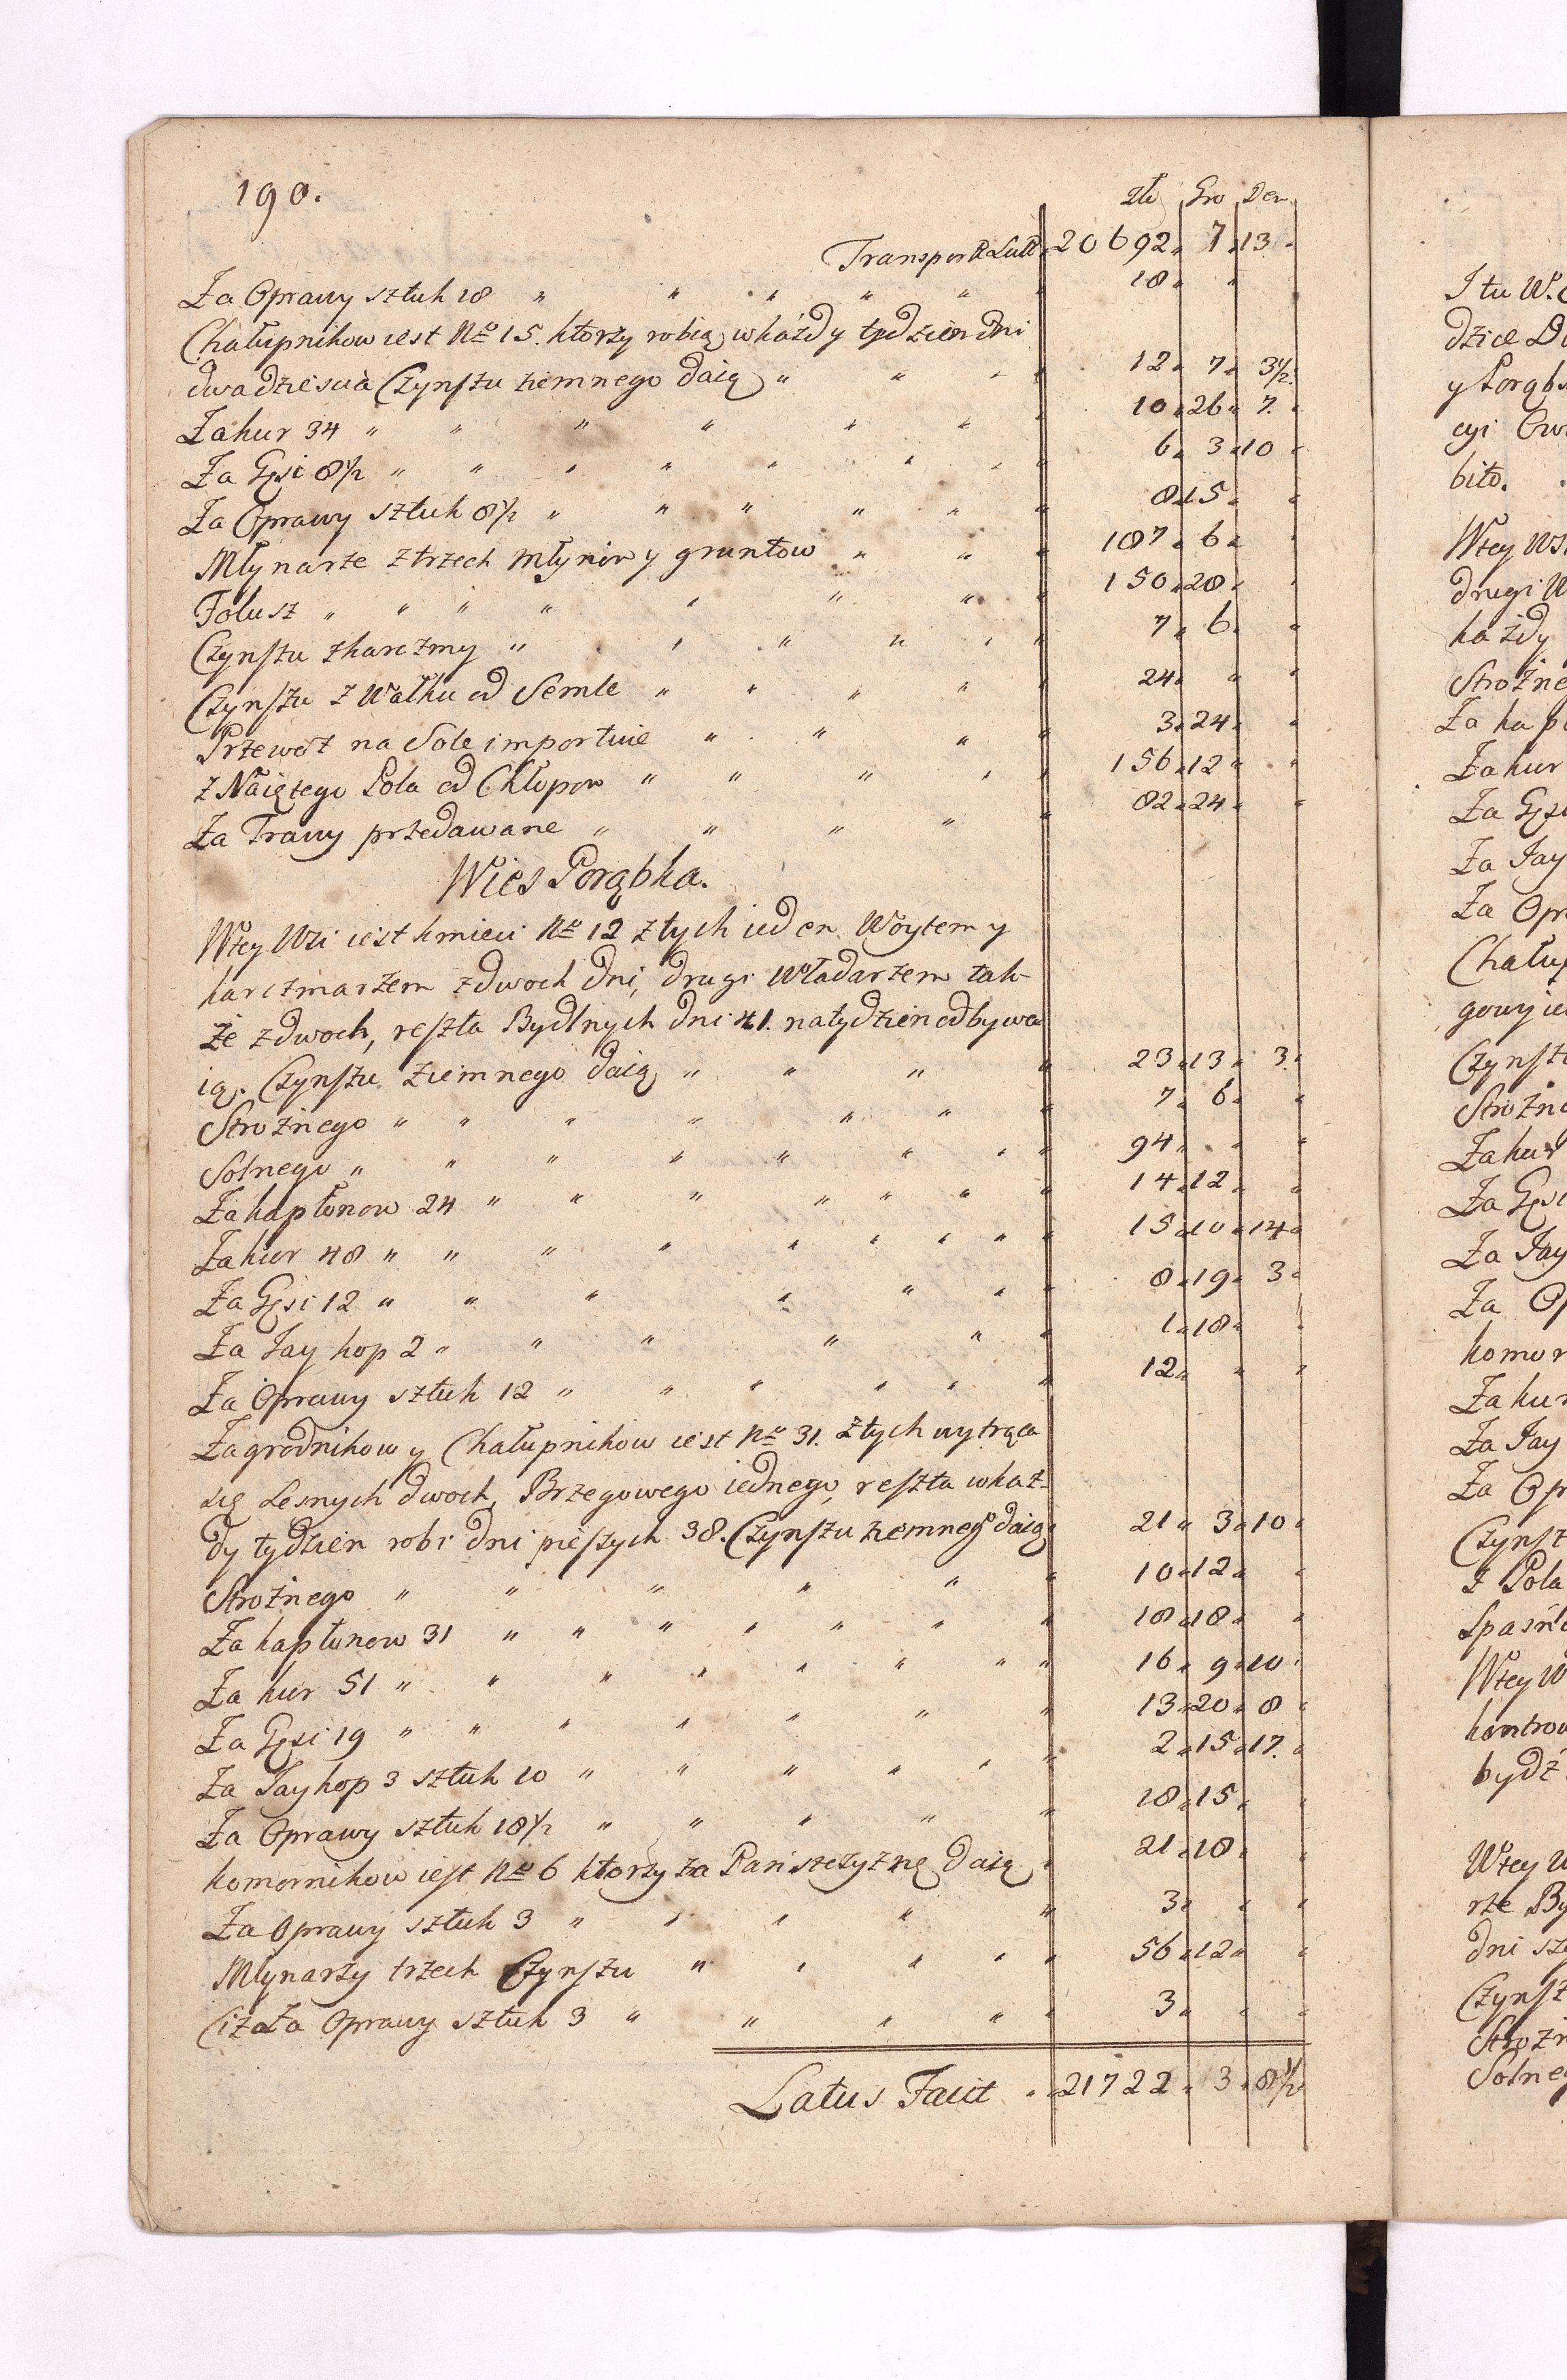 190.
Złt Gro Den
Transport Lat. 20692 7 13
Za Oprawy sztuk 18 " 18 "
Chałupnikow iest No 15. ktorzy robią w każdy tydzien dni
dwadziescia Czynszu ziemnego daią " 12 7 3½
Za kur 34 " 10 26 7
Za Gęsi 8½ " 6 3 10
Za Oprawy sztuk 8½ " 8 15
Młynarze z trzech Młynow y gruntow " 187 6
Folusz " 150 28
Czynszu z karczmy " 7 6
Czynszu z Wałku od Semle " 24 "
Przewoz na Sole importuie " 3 24
z Naiętego Pola od Chłopow " 156 12
Za Trawy przedawane " 82 24
Wies Porąbka.
W tey Wsi iest kmieci No 12 z tych ieden Woytem y
karczmarzem z dwoch dni, drugi Włodarzem tak-
że z dwoch, reszta Bydlnych dni 41. na tydzien odbywa
ią. Czynszu ziemnego daią " 23 13 3
Strożnego " 7 6
Solnego " 94 "
Za kapłonow 24 " 14 12
Za kur 48 " 15 10 14
Za Gęsi 12 " 8 19 3
Za Jay kop 2 " 1 18
Za Oprawy sztuk 12 " 12 "
Zagrodnikow y Chałupnikow iest No 31. z tych wytrąca
się Lesnych dwoch, Brzegowego iednego, reszta w każ-
dy tydzien robi dni pieszych 38. Czynszu ziemnego daią 21 3 10
Strożnego " 10 12
Za kapłonow 31 " 18 18
Za kur 51 " 16 9 10
Za Gęsi 19 " 13 20 8
Za Jay kop 3 sztuk 10 " 2 15 17
Za Oprawy sztuk 18½ " 18 15
komornikow iest No 6 ktorzy za Panszczyznę daią 21 18
Za Oprawy sztuk 3 " 3 "
Młynarzy trzech Czynszu " 56 12
Ciż Za Oprawy sztuk 3 " 3 "
Latus Facit 21722 3 8½
I tu W.
y Porąb
bito.
W tey Ws
drugi W
każdy
Strożne
Za kap
Za kur
Za Gęsi
Za Jay
Za Opr
Chałup
Czynsz
Strożne
Za kur
Za Gęsi
Za Jay
Za Op
komor
Za kur
Za Jay
Za Opr
Czynsz
z Pola
W tey W
bydź
W tey W
rze By
dni
Czynsz
Strożn
Solne